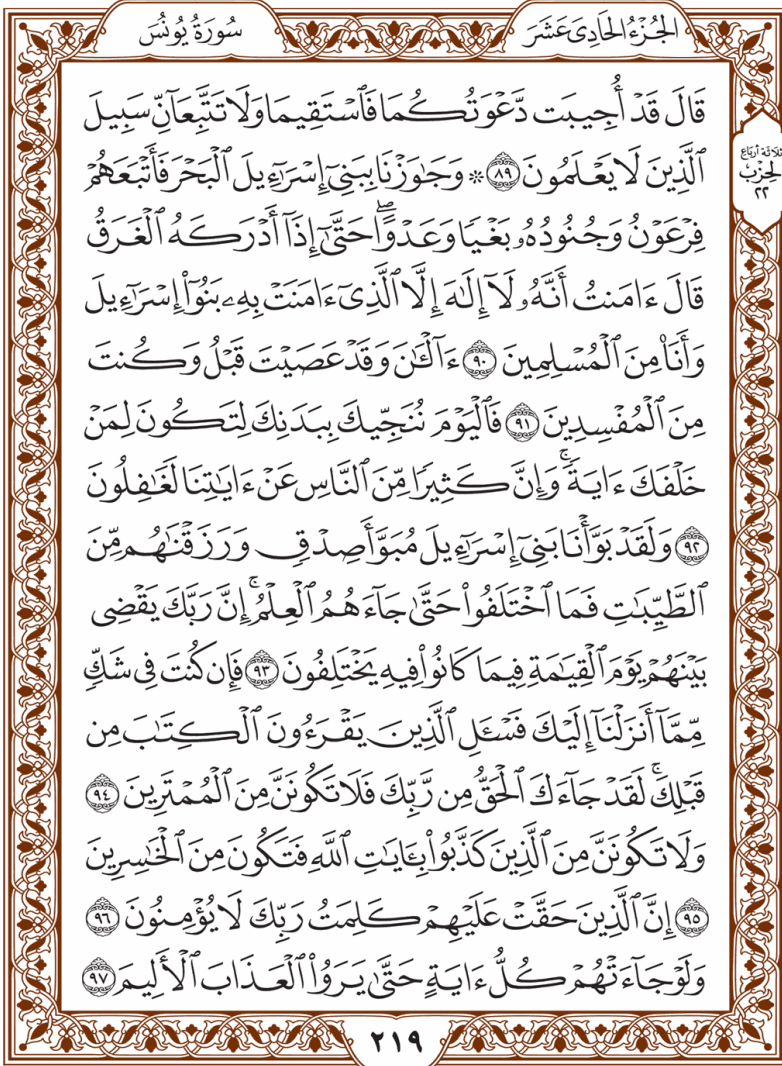 الجُزْءُ الحَادِىَ عَشَرَ
سُورَةُ يُونُسَ
قَالَ قَدْ أُجِيبَت دَّعْوَتُكُمَا فَٱسْتَقِيمَا وَلَا تَتَّبِعَآنِّ سَبِيلَ
ٱلَّذِينَ لَا يَعْلَمُونَ ٨٩ ۞ وَجَٰوَزْنَا بِبَنِىٓ إِسْرَٰٓءِيلَ ٱلْبَحْرَ فَأَتْبَعَهُمْ
فِرْعَوْنُ وَجُنُودُهُۥ بَغْيًا وَعَدْوًا ۖ حَتَّىٰٓ إِذَآ أَدْرَكَهُ ٱلْغَرَقُ
قَالَ ءَامَنتُ أَنَّهُۥ لَآ إِلَٰهَ إِلَّا ٱلَّذِىٓ ءَامَنَتْ بِهِۦ بَنُوٓا۟ إِسْرَٰٓءِيلَ
وَأَنَا۠ مِنَ ٱلْمُسْلِمِينَ ٩٠ ءَآلْـَٰٔنَ وَقَدْ عَصَيْتَ قَبْلُ وَكُنتَ
مِنَ ٱلْمُفْسِدِينَ ٩١ فَٱلْيَوْمَ نُنَجِّيكَ بِبَدَنِكَ لِتَكُونَ لِمَنْ
خَلْفَكَ ءَايَةً ۚ وَإِنَّ كَثِيرًا مِّنَ ٱلنَّاسِ عَنْ ءَايَٰتِنَا لَغَٰفِلُونَ
٩٢ وَلَقَدْ بَوَّأْنَا بَنِىٓ إِسْرَٰٓءِيلَ مُبَوَّأَ صِدْقٍ وَرَزَقْنَٰهُم مِّنَ
ٱلطَّيِّبَٰتِ فَمَا ٱخْتَلَفُوا۟ حَتَّىٰ جَآءَهُمُ ٱلْعِلْمُ ۚ إِنَّ رَبَّكَ يَقْضِى
بَيْنَهُمْ يَوْمَ ٱلْقِيَٰمَةِ فِيمَا كَانُوا۟ فِيهِ يَخْتَلِفُونَ ٩٣ فَإِن كُنتَ فِى شَكٍّ
مِّمَّآ أَنزَلْنَآ إِلَيْكَ فَسْـَٔلِ ٱلَّذِينَ يَقْرَءُونَ ٱلْكِتَٰبَ مِن
قَبْلِكَ ۚ لَقَدْ جَآءَكَ ٱلْحَقُّ مِن رَّبِّكَ فَلَا تَكُونَنَّ مِنَ ٱلْمُمْتَرِينَ ٩٤
وَلَا تَكُونَنَّ مِنَ ٱلَّذِينَ كَذَّبُوا۟ بِـَٔايَٰتِ ٱللَّهِ فَتَكُونَ مِنَ ٱلْخَٰسِرِينَ
٩٥ إِنَّ ٱلَّذِينَ حَقَّتْ عَلَيْهِمْ كَلِمَتُ رَبِّكَ لَا يُؤْمِنُونَ ٩٦
وَلَوْ جَآءَتْهُمْ كُلُّ ءَايَةٍ حَتَّىٰ يَرَوُا۟ ٱلْعَذَابَ ٱلْأَلِيمَ ٩٧
ثلاثة أرباع
الحزب
٢٢
٢١٩